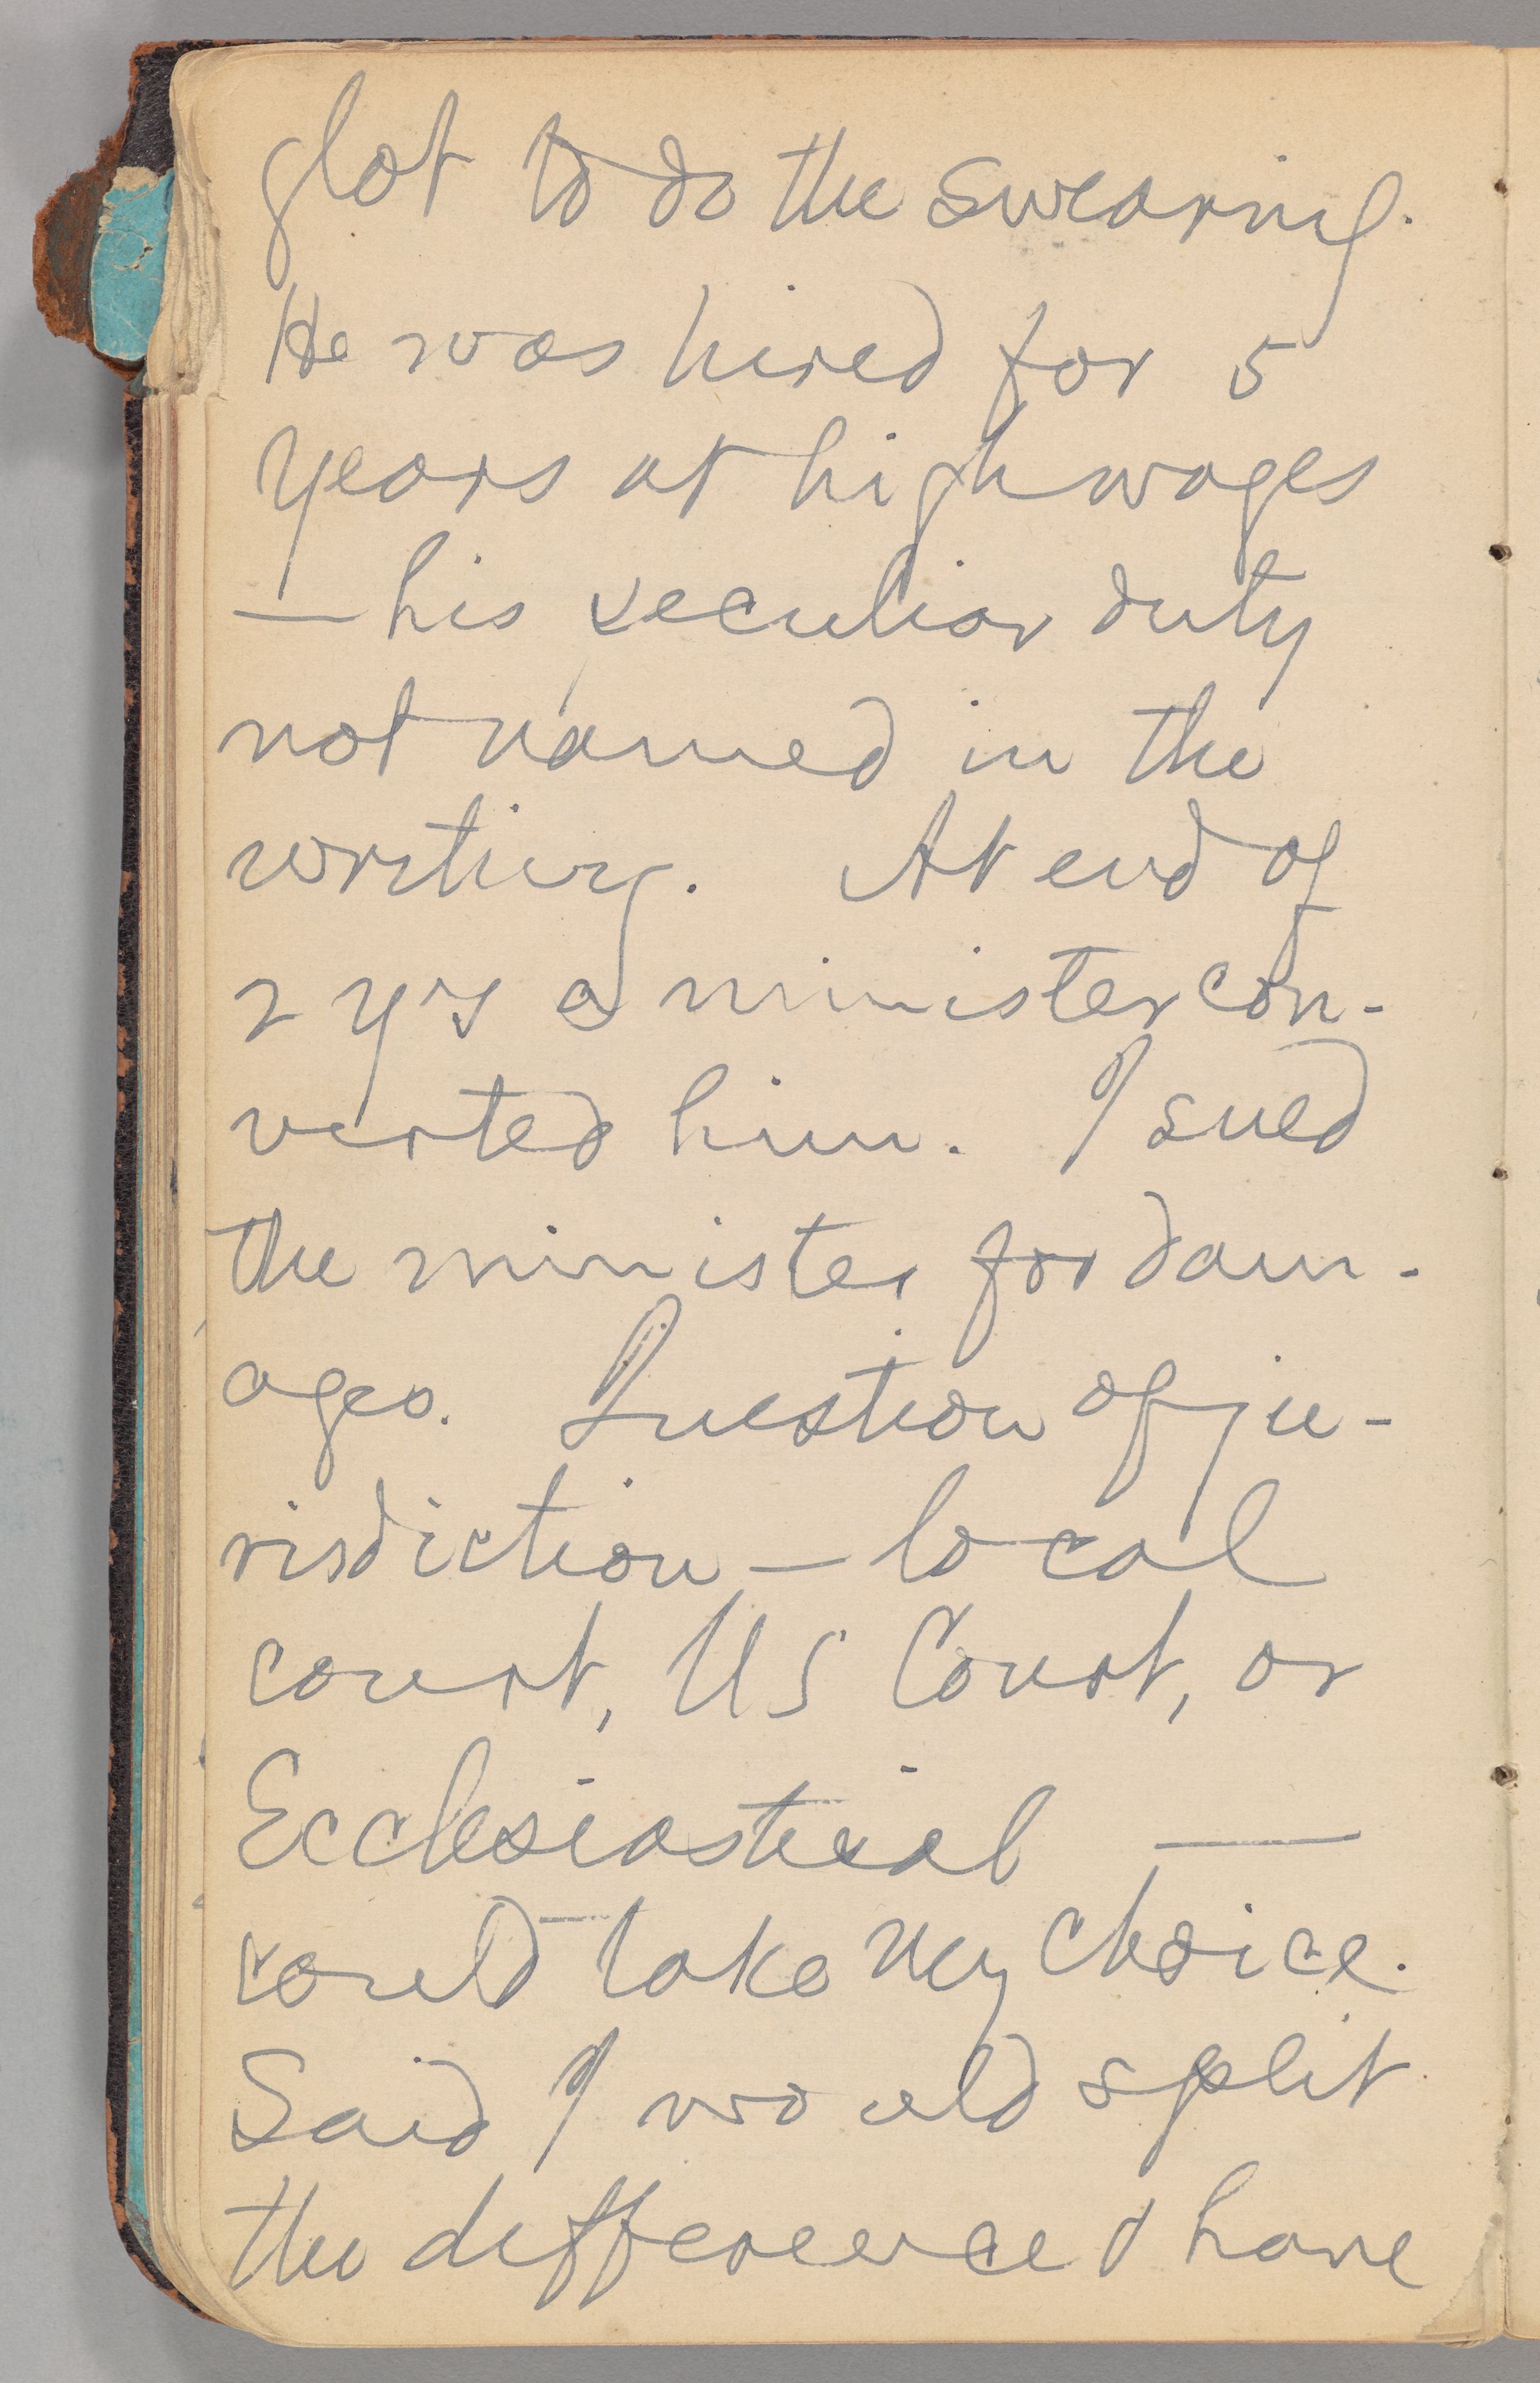 glot to do the swearing.
He was hired for 5
years at high wages
— his peculiar duty
not named in the
writing. At end of
2 yrs a minister con-
verted him. I sued
the minister for dam-
ages. Question of ju-
risdiction — local
court, US Court, or
Ecclesiastical —
could take my choice.
Said I would split
the difference & have